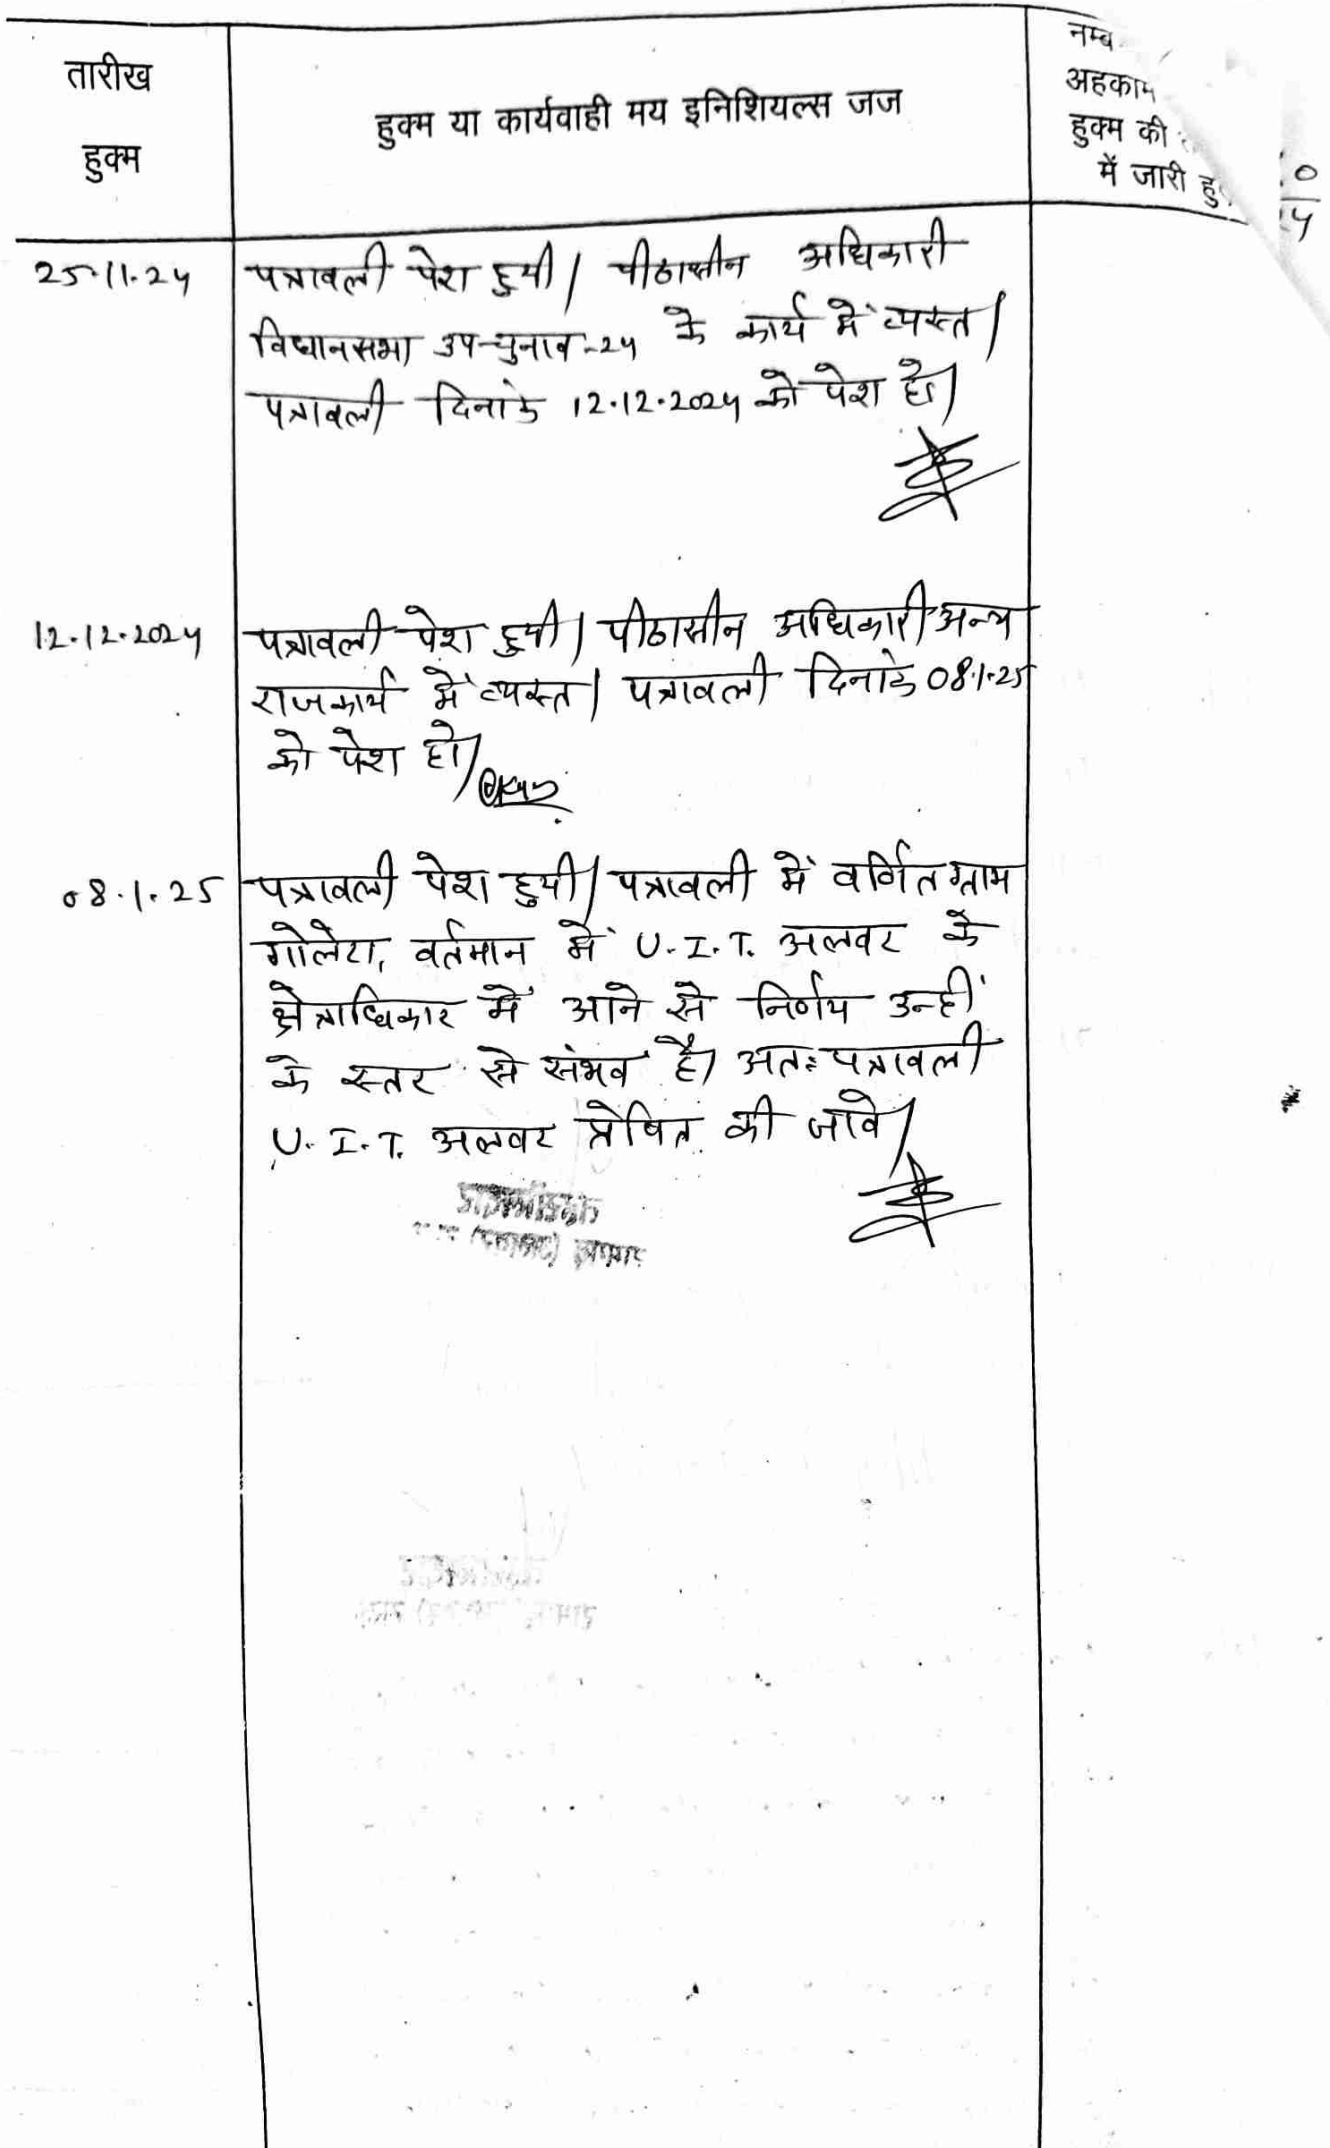 तारीख
हुक्म
हुक्म या कार्यवाही मय इनिशियल्स जज
नम्ब
अहकाम
हुक्म की
में जारी हु
25.11.24
पत्रावली पेश हुयी। पीठासीन अधिकारी
विधानसभा उप-चुनाव-24 के कार्य में व्यस्त।
पत्रावली दिनांक 12.12.2024 को पेश हो।
12.12.2024
पत्रावली पेश हुयी। पीठासीन अधिकारी अन्य
राजकार्य में व्यस्त। पत्रावली दिनांक 08.1.25
को पेश हो।
08.1.25
पत्रावली पेश हुयी। पत्रावली में वर्णित ग्राम
गोलेटा, वर्तमान में U.I.T. अलवर के
क्षेत्राधिकार में आने से निर्णय उन्हीं
के स्तर से संभव है। अतः पत्रावली
U.I.T. अलवर प्रेषित की जावे।